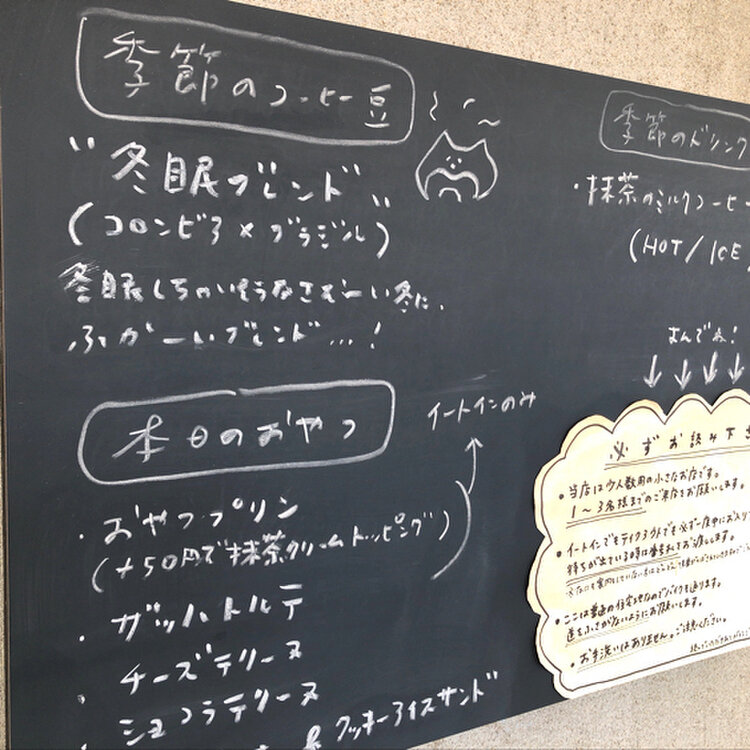 季節のコーヒー豆
"冬眠ブレンド"
(コロンビア×ブラジル)
冬眠しちゃいそうなさむーい冬に、
ふかーいブレンド…!
本日のおやつ
イートインのみ
・おやつプリン
(+50円で抹茶クリームトッピング)
・ザッハトルテ
・チーズテリーヌ
・ショコラテリーヌ
& クッキーアイスサンド
季節のドリンク
・抹茶のミルクコーヒー
(HOT/ICE)
よんでね!
↓↓↓↓
必ずお読み下さ
・当店は少人数用の小さなお店です。
1〜3名様までのご来店をお願いします。
・イートインでもテイクアウトでも必ず一度中にお入り
持ちが出ている時は
・ここは普通の住宅地なのでバイクも通ります。
道をふさがないようにお願いします。
・お手洗いはありません。ご注意ください。